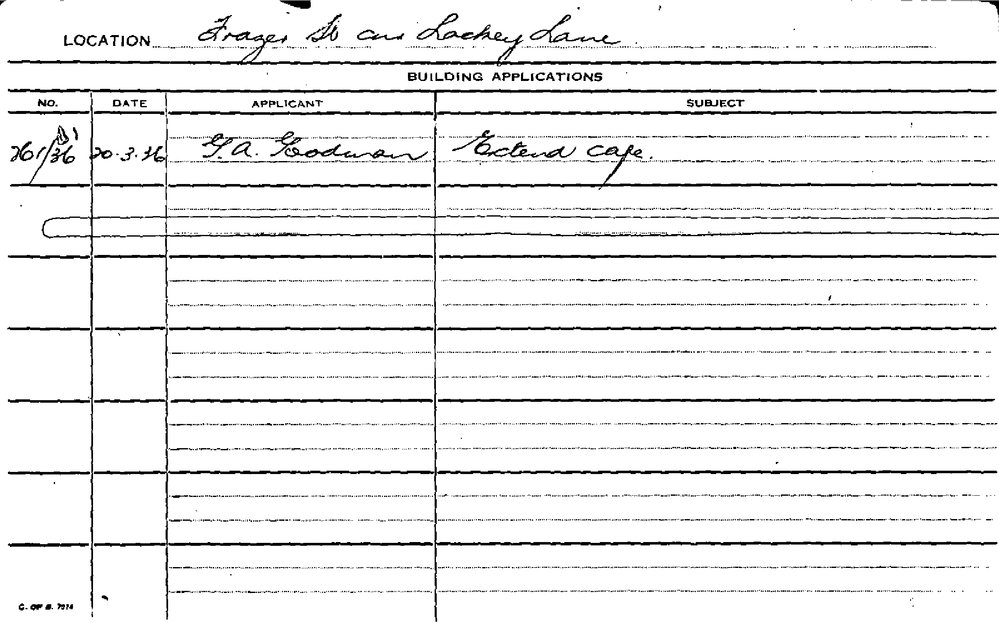 LOCATION Frazer St cnr Lackey Lane
BUILDING APPLICATIONS
NO. DATE APPLICANT SUBJECT
261/36 20.3.36 G.A. Goodman Extend cafe.
C. OF S. 7074